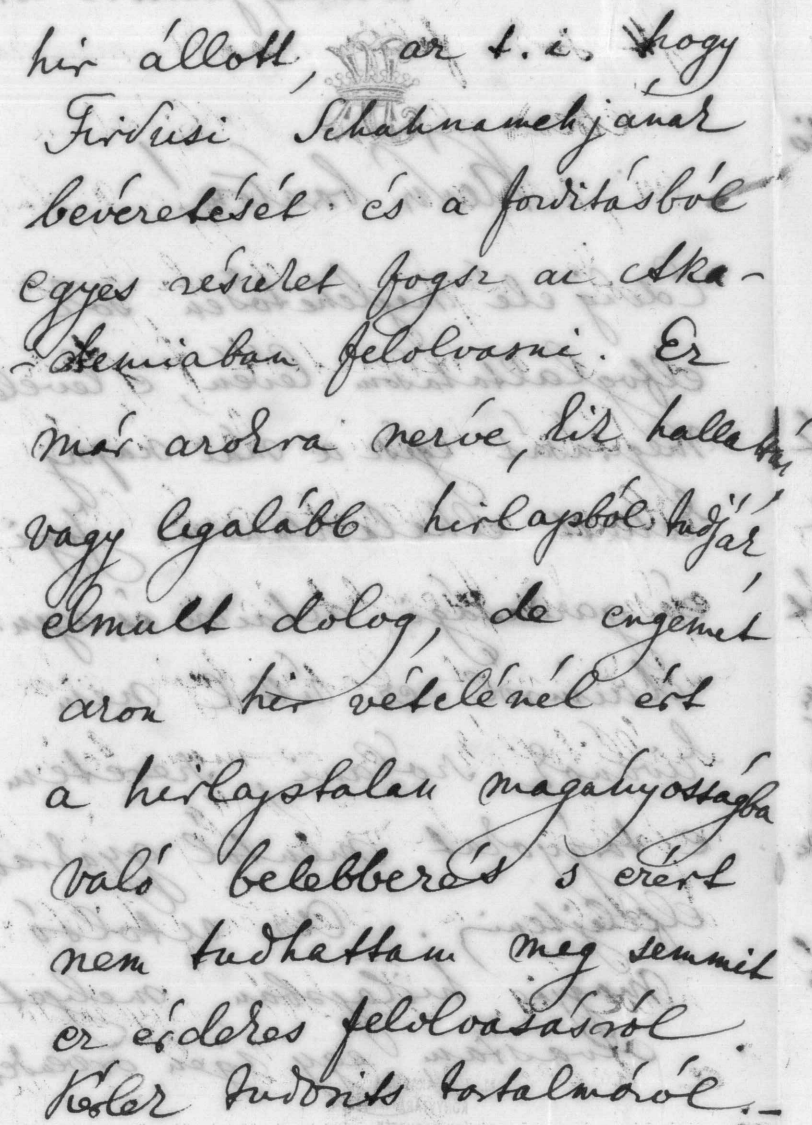 hir állott, az t. i. hogy
Firdusi Schahnamehjának
bevézetését és a forditásból
egyes részeket fogsz az Aka-
-demiaban felolvasni. Ez
már azokra nézve, kik hallották
vagy legalább hirlapból tudják,
elmult dolog, de engemet
azon hir vételénél ért
a hirlaptalan magányosságba
való belebbezés s ezért
nem tudhattam meg semmit
ez érdekes felolvasásról.
Kérlek tudosits tartalmáról. -